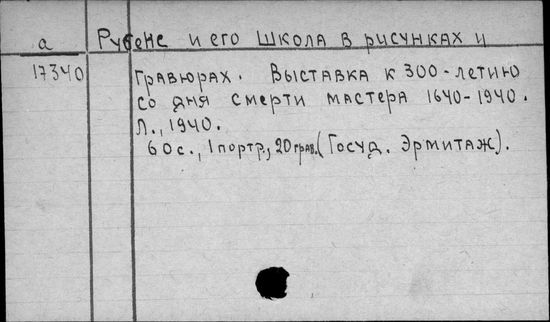 а Рубенс и его школа в рисунках и
17340 гравюрах. Выставка к 300-летию
со дня смерти мастера 1640-1940.
Л., 1940.
60 с., 1 портр., 20 грав. (Госуд. Эрмитаж).